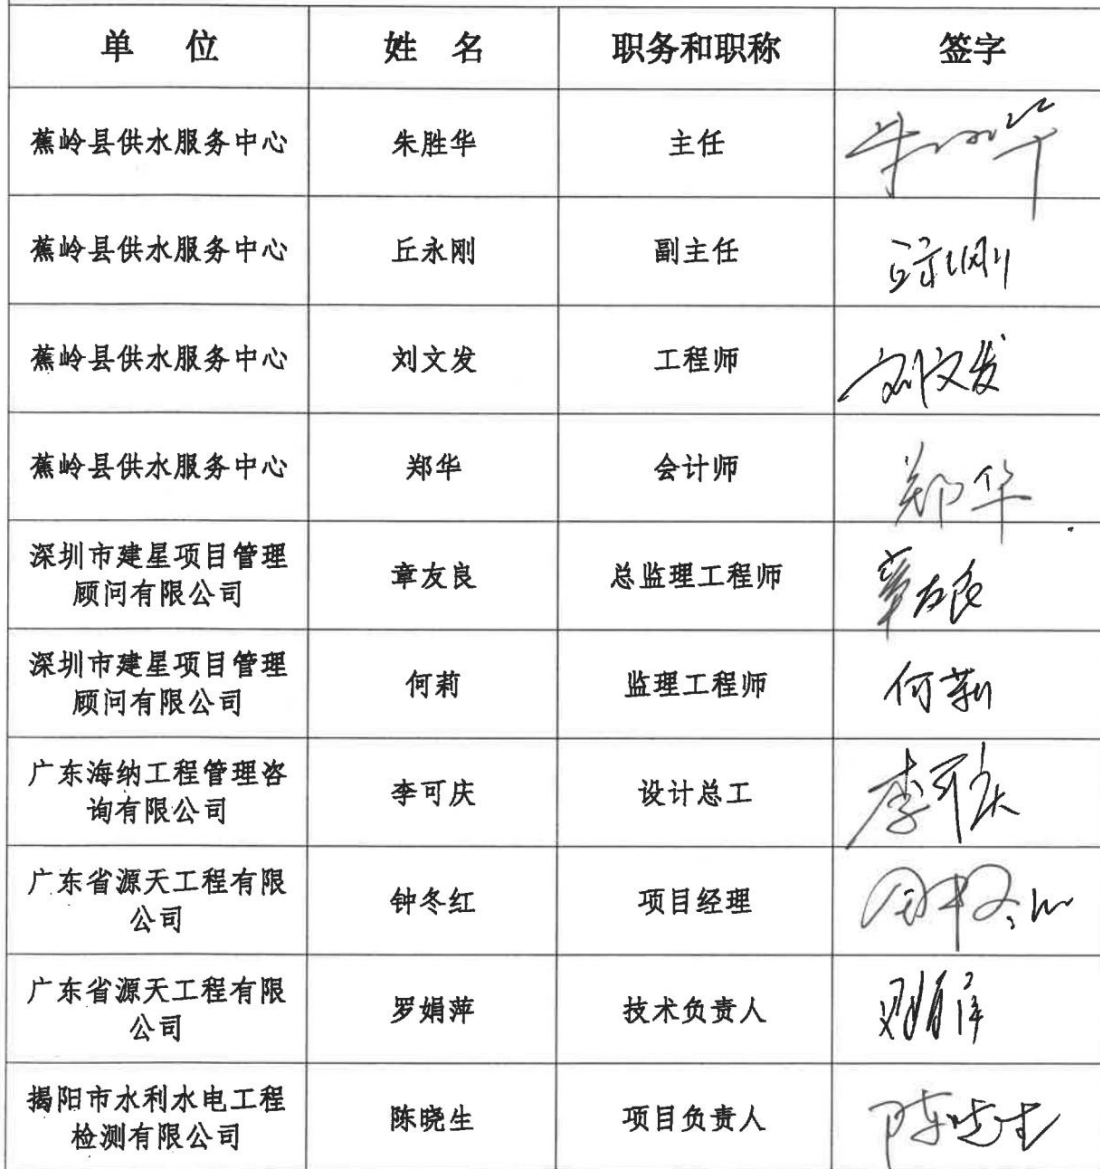 单 位 姓 名 职务和职称 签字
蕉岭县供水服务中心 朱胜华 主任
蕉岭县供水服务中心 丘永刚 副主任
蕉岭县供水服务中心 刘文发 工程师 刘文发
蕉岭县供水服务中心 郑华 会计师 郑华
深圳市建星项目管理
顾问有限公司 章友良 总监理工程师 章友良
深圳市建星项目管理
顾问有限公司 何莉 监理工程师 何莉
广东海纳工程管理咨
询有限公司 李可庆 设计总工 李可庆
广东省源天工程有限
公司 钟冬红 项目经理
广东省源天工程有限
公司 罗娟萍 技术负责人
揭阳市水利水电工程
检测有限公司 陈晓生 项目负责人 陈晓生